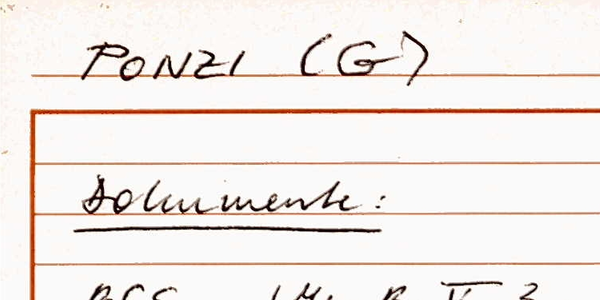 PONZI (G)
Dokumente: